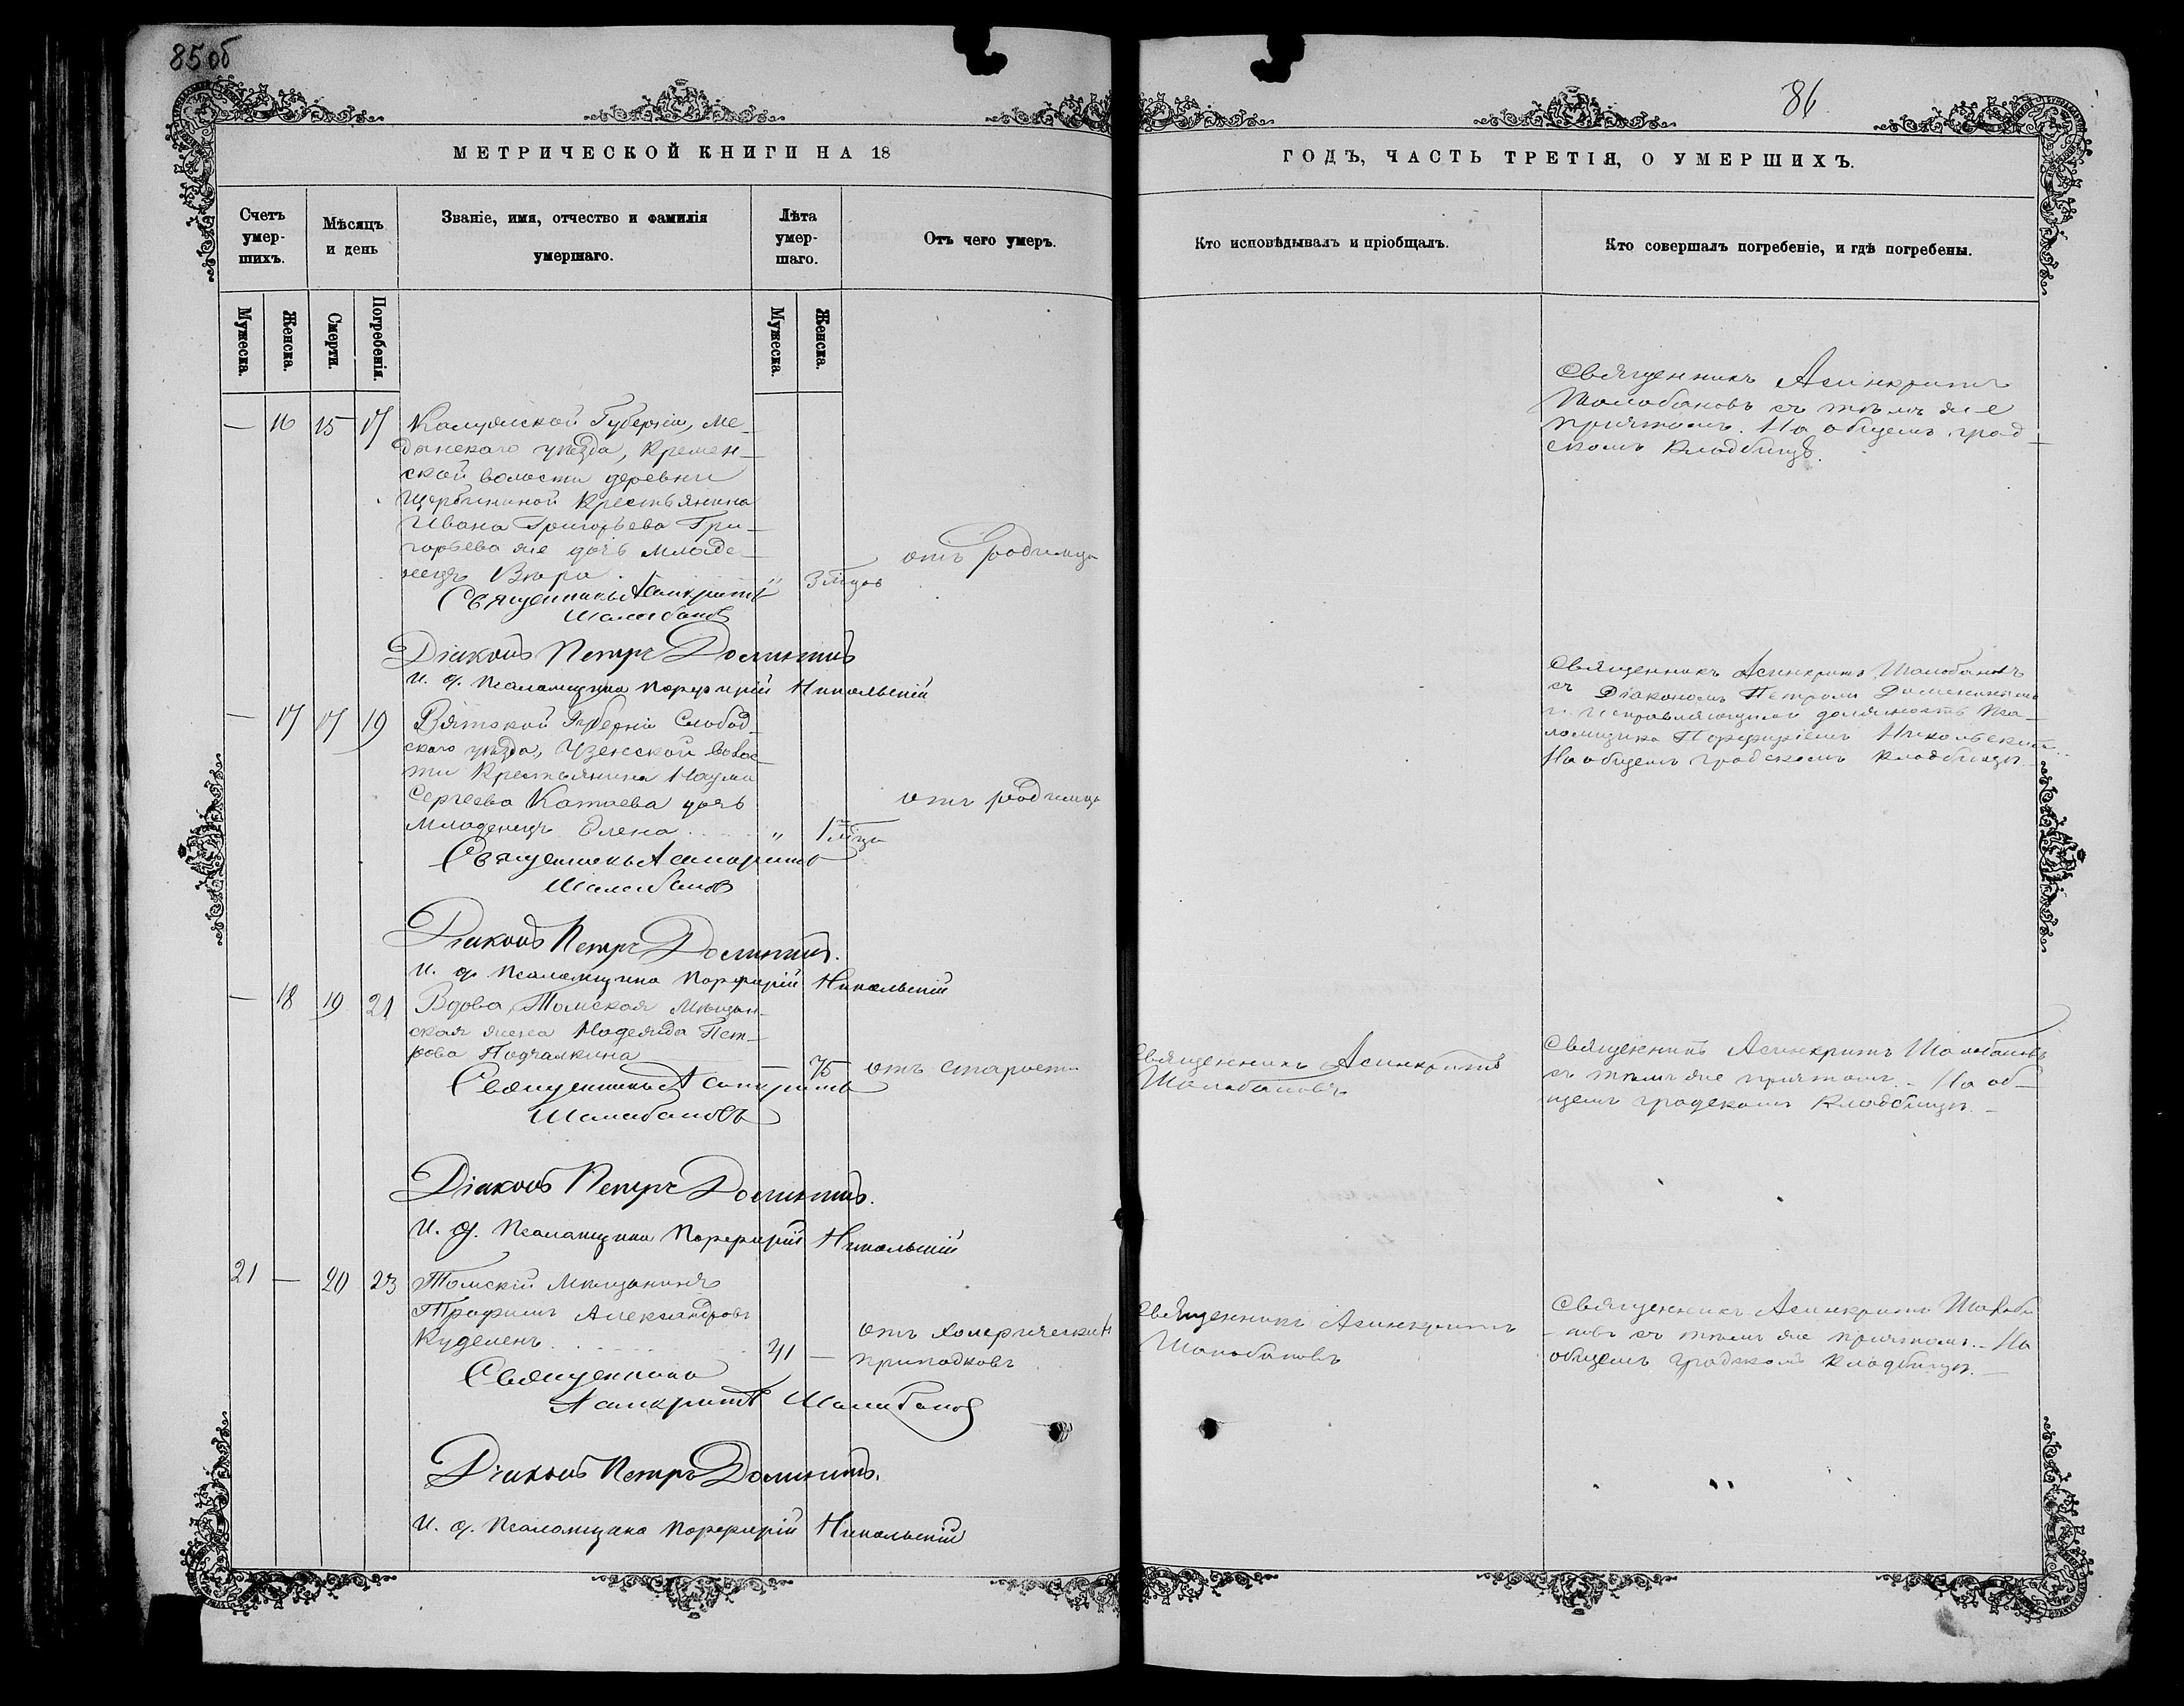 85об
МЕТРИЧЕСКОЙ КНИГИ НА 18
Счетъ умер-шихъ.
Мѣсяцъ и день
Званіе, имя, отчество и фамилія умершаго.
Лѣта умер-шаго.
Отъ чего умеръ.
Мужеска.
Женска.
Смерти.
Погребенія.
Мужеска.
Женска.
— 16 15 17 Калужской Губерніи, Ме-
дынскаго уѣзда, Кремен-
ской волости деревни
Щербининой Крестьянина
Ивана Григорьева Гри-
горьева же дочь младе-
нецъ Вѣра. " 3 мцов отъ родимца
Священникъ Асинкритъ
Шалабановъ
Діаконъ Петръ
И. д. Псаломщика Порфирій Никольскій
— 17 17 19 Вятской Губерніи Слобод-
скаго уѣзда, волос-
ти Крестьянина Наума
Сергеева Катаева дочь
младенецъ Елена " 1 мца отъ родимца
Священникъ Асинкритъ
Шалабановъ
Діаконъ Петръ
И. д. Псаломщика Порфирій Никольскій
— 18 19 21 Вдова, Томская Мѣщан-
ская жена Надежда Пет-
рова Подчалкина — 75 отъ старости
Священникъ Асинкритъ
Шалабановъ
Діаконъ Петръ
И. д. Псаломщика Порфирій Никольскій
21 — 20 23 Томскій Мѣщанинъ
Трофимъ Александровъ
Куделенъ 41 — отъ холерическихъ
припадковъ
Священникъ
Асинкритъ Шалабановъ
Діаконъ Петръ
И. д. Псаломщика Порфирій Никольскій
86
ГОДЪ, ЧАСТЬ ТРЕТІЯ, О УМЕРШИХЪ.
Кто исповѣдывалъ и пріобщалъ.
Кто совершалъ погребеніе, и гдѣ погребены.
Священникъ Асинкритъ
Шалабановъ съ тѣмъ же
причтомъ. На общемъ град-
скомъ кладбищѣ.
Священникъ Асинкритъ Шалабановъ
съ Діакономъ Петромъ
и исправляющимъ должность Пса-
ломщика Порфиріемъ Никольскимъ.
На общемъ градскомъ кладбищѣ
Священникъ Асинкритъ
Шалабановъ
Священникъ Асинкритъ Шалабановъ
съ тѣмъ же причтомъ. - На об-
щемъ градскомъ кладбищѣ. -
Священникъ Асинкритъ
Шалабановъ
Священникъ Асинкритъ Шалаба
-новъ съ тѣмъ же причтомъ. - На
общемъ градскомъ кладбищѣ. -